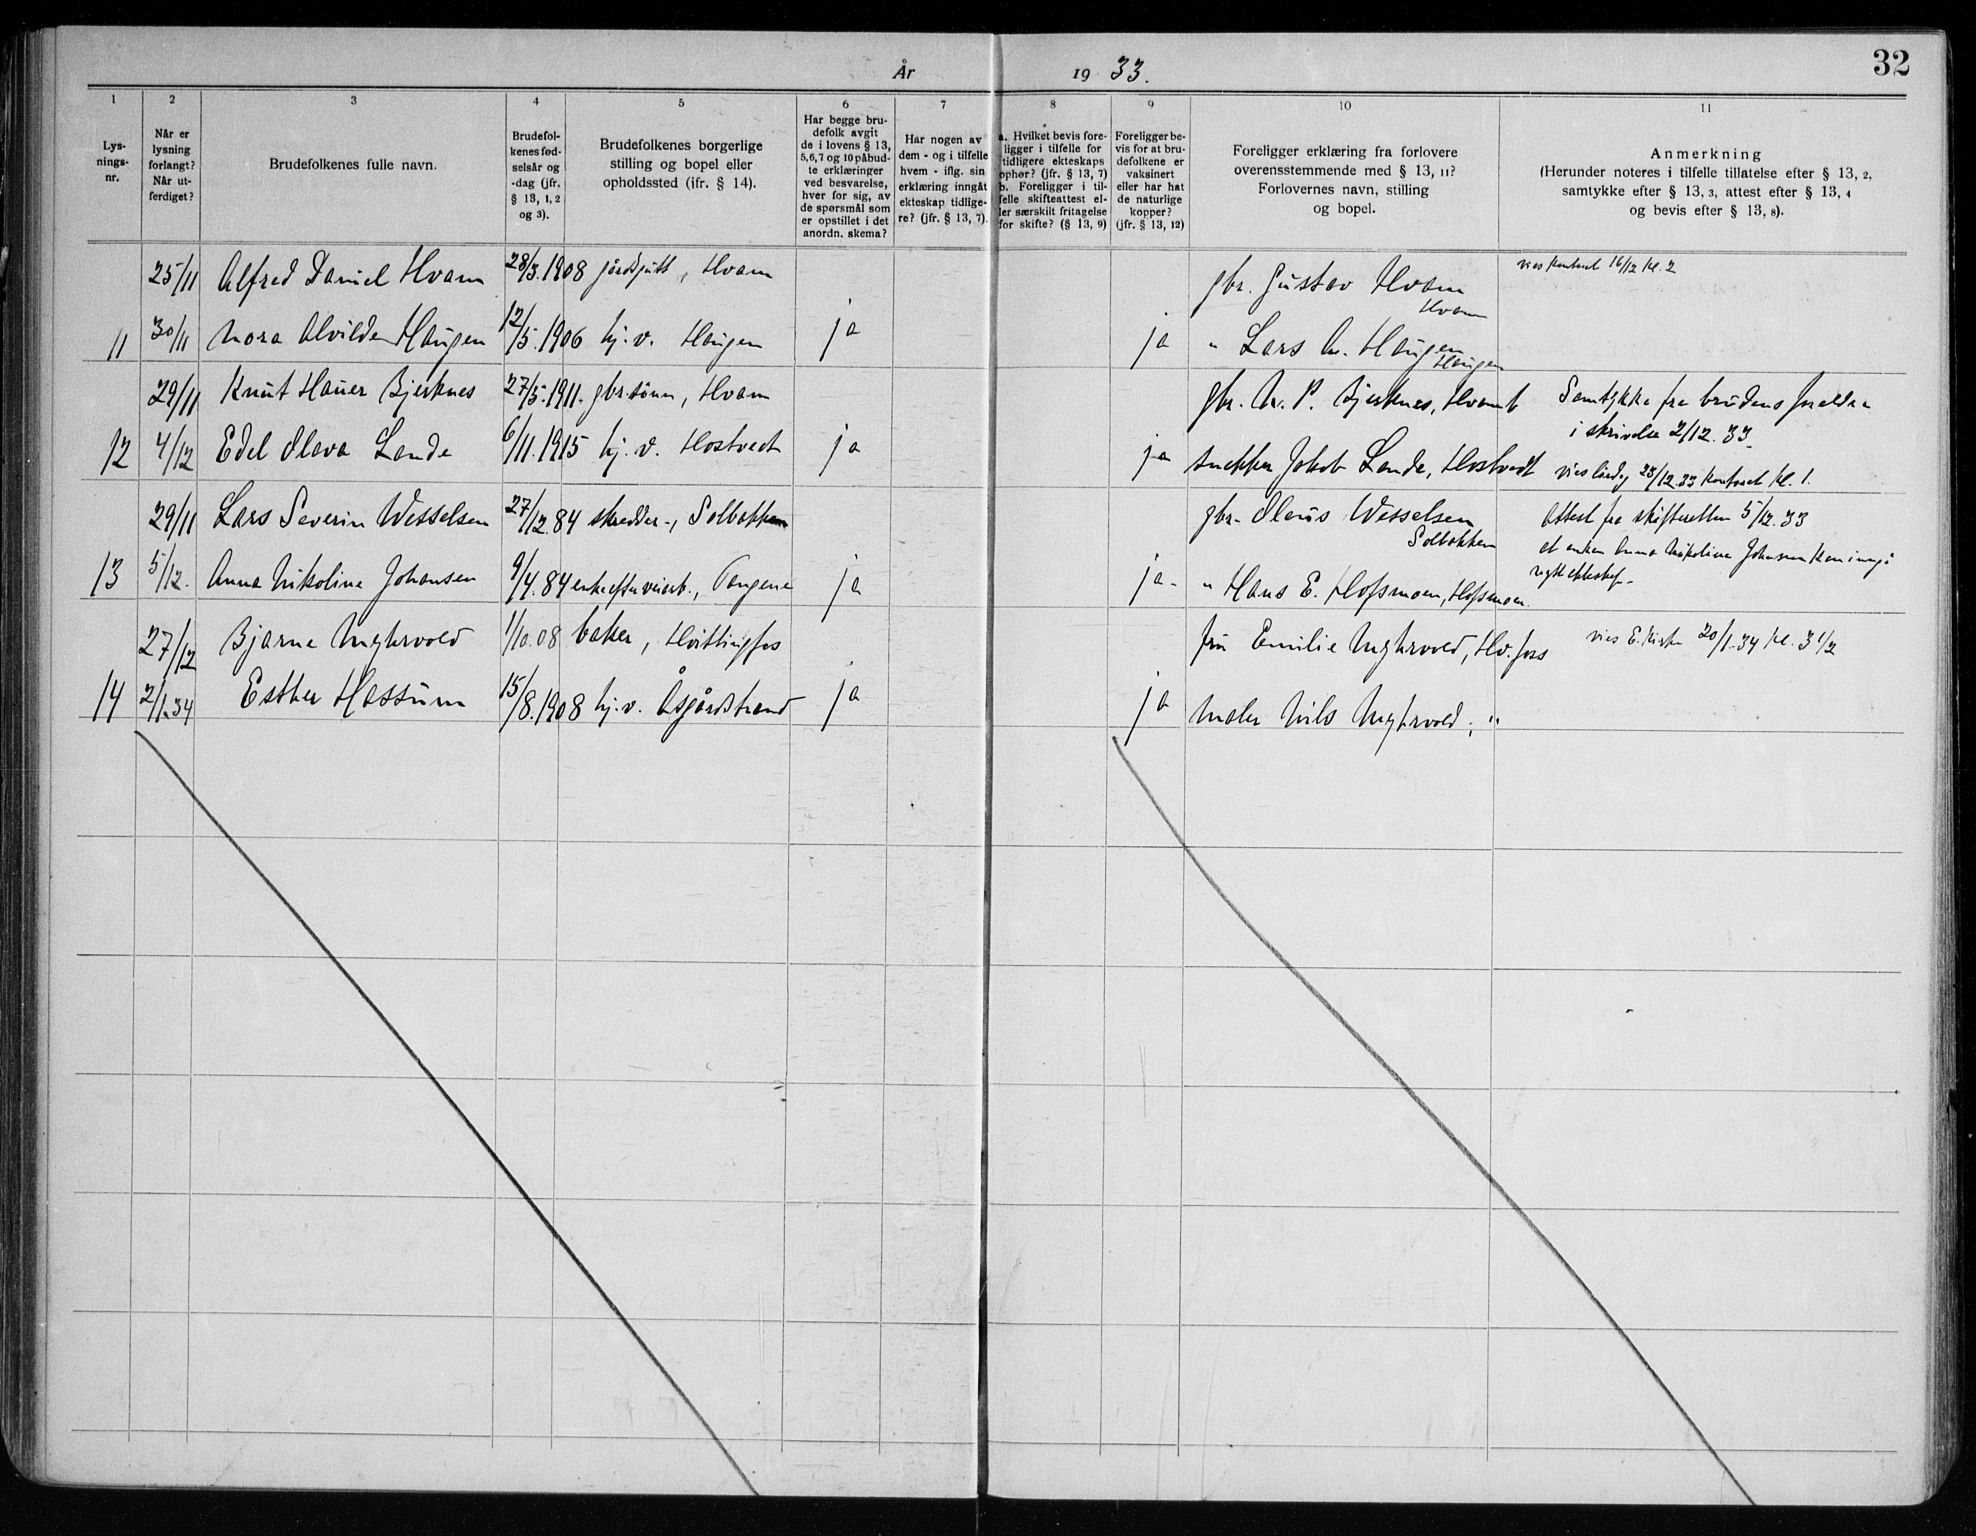 År 1933.
32
1 2 3 4 5 6 7 8 9 10 11
Lys-
nings-
nr.
Når er
lysning
forlangt?
Når ut-
ferdiget?
Brudefolkenes fulle navn.
Brudefol-
kenes fød-
selsår og
-dag (jfr.
§ 13, 1, 2
og 3).
Brudefolkenes borgerlige
stilling og bopel eller
opholdssted (ifr. § 14).
Har begge bru-
defolk avgit
de i lovens § 13,
5,6,7 og 10 påbud-
te erklæringer
ved besvarelse,
hver for sig, av
de spørsmål som
er opstillet i det
anordn. skema?
Har nogen av
dem - og i tilfelle
hvem - iflg. sin
erklæring inngåt
ekteskap tidlige-
re? (jfr. § 13, 7).
a. Hvilket bevis fore-
ligger i tilfelle for
tidligere ekteskaps
ophør? (jfr. § 13, 7)
b. Foreligger i til-
felle skifteattest el-
ler særskilt fritagelse
for skifte? (§ 13, 9)
Foreligger be-
vis for at bru-
defolkene er
vaksinert
eller har hat
de naturlige
kopper?
(jfr. § 13, 12)
Foreligger erklæring fra forlovere
overensstemmende med § 13, 11?
Forlovernes navn, stilling
og bopel.
Anmerkning
(Herunder noteres i tilfelle tillatelse efter § 13, 2,
samtykke efter § 13, 3, attest efter § 13, 4
og bevis efter § 13, 8).
25/11 Alfred Daniel Hvam 28/3.1908 gårdsgutt, Hvam gbr. Gustav Hvam
Hvam
vies kontoret 16/12 kl. 2
11 30/11 Nora Alvilde Haugen 12/5.1906 hj.v. Haugen ja ja " Lars A. Haugen
Haugen
29/11 Knut Hauer Bjerknes 27/5.1911. gbr.sønn, Hvam gbr. N. P. Bjerknes, Hvam Samtykke fra brudens foreldre
i skrivelse 2/12.33.
12 4/12 Edel Olava Lande 6/11.1915 hj.v. Hostvedt ja ja snekker Jakob Lande, Hostvedt
vies lørdag 23/12.33 kontoret kl. 1.
29/11 Lars Severin Wesselsen 27/12.84 skredder-, Solbakken gbr. Olaus Wesselsen
Solbakken
Attest fra skifteretten 5/12.33
at enken Anna Nikoline Johansen kan inngå
nytt ekteskap.
13 5/12. Anna Nikoline Johansen 9/4.84 enke efter veiarb., Tangene ja ja- " Hans E. Hofsmoen, Hofsmoen.
27/12 Bjarne Myhrvold 1/10.08 baker, Hvittingfos fru Emilie Myhrvold, Hv.foss vies E. kirke 20/1.34 kl. 3 1/2
14 2/1.34 Esther Hassum 15/8.1908 hj.v. Åsgårdstrand ja ja maler Nils Myhrvold, "